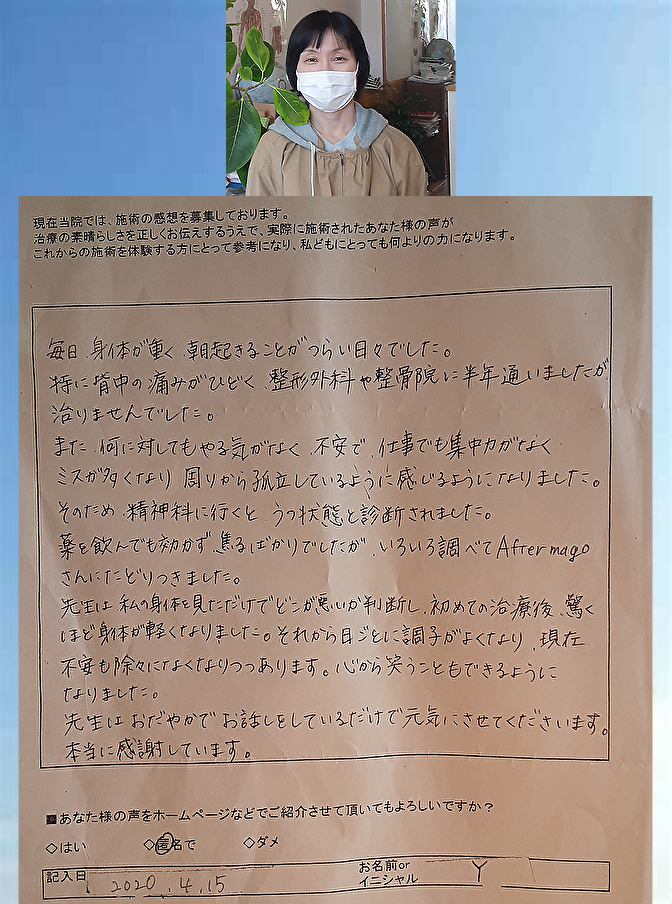 現在当院では、施術の感想を募集しております。
治療の素晴らしさを正しくお伝えするうえで、実際に施術されたあなた様の声が
これからの施術を体験する方にとって参考になり、私どもにとっても何よりの力になります。
毎日、身体が重く、朝起きることがつらい日々でした。
特に背中の痛みがひどく、整形外科や整骨院に半年通いましたが
治りませんでした。
また、何に対してもやる気がなく、不安で、仕事でも集中力がなく
ミスが多くなり 周りから孤立しているように感じるようになりました。
そのため、精神科に行くと、うつ状態と診断されました。
薬を飲んでも効かず、焦るばかりでしたが、いろいろ調べてAftermago
さんにたどりつきました。
先生は私の身体を見ただけでどこが悪いか判断し、初めての治療後、驚く
ほど身体が軽くなりました。それから日ごとに調子がよくなり、現在
不安も除々になくなりつつあります。心から笑うこともできるように
なりました。
先生はおだやかでお話しをしているだけで元気にさせてくださいます。
本当に感謝しています。
■あなた様の声をホームページなどでご紹介させて頂いてもよろしいですか？
◇はい ◇匿名で ◇ダメ
記入日 2020.4.15 お名前or
イニシャル Y